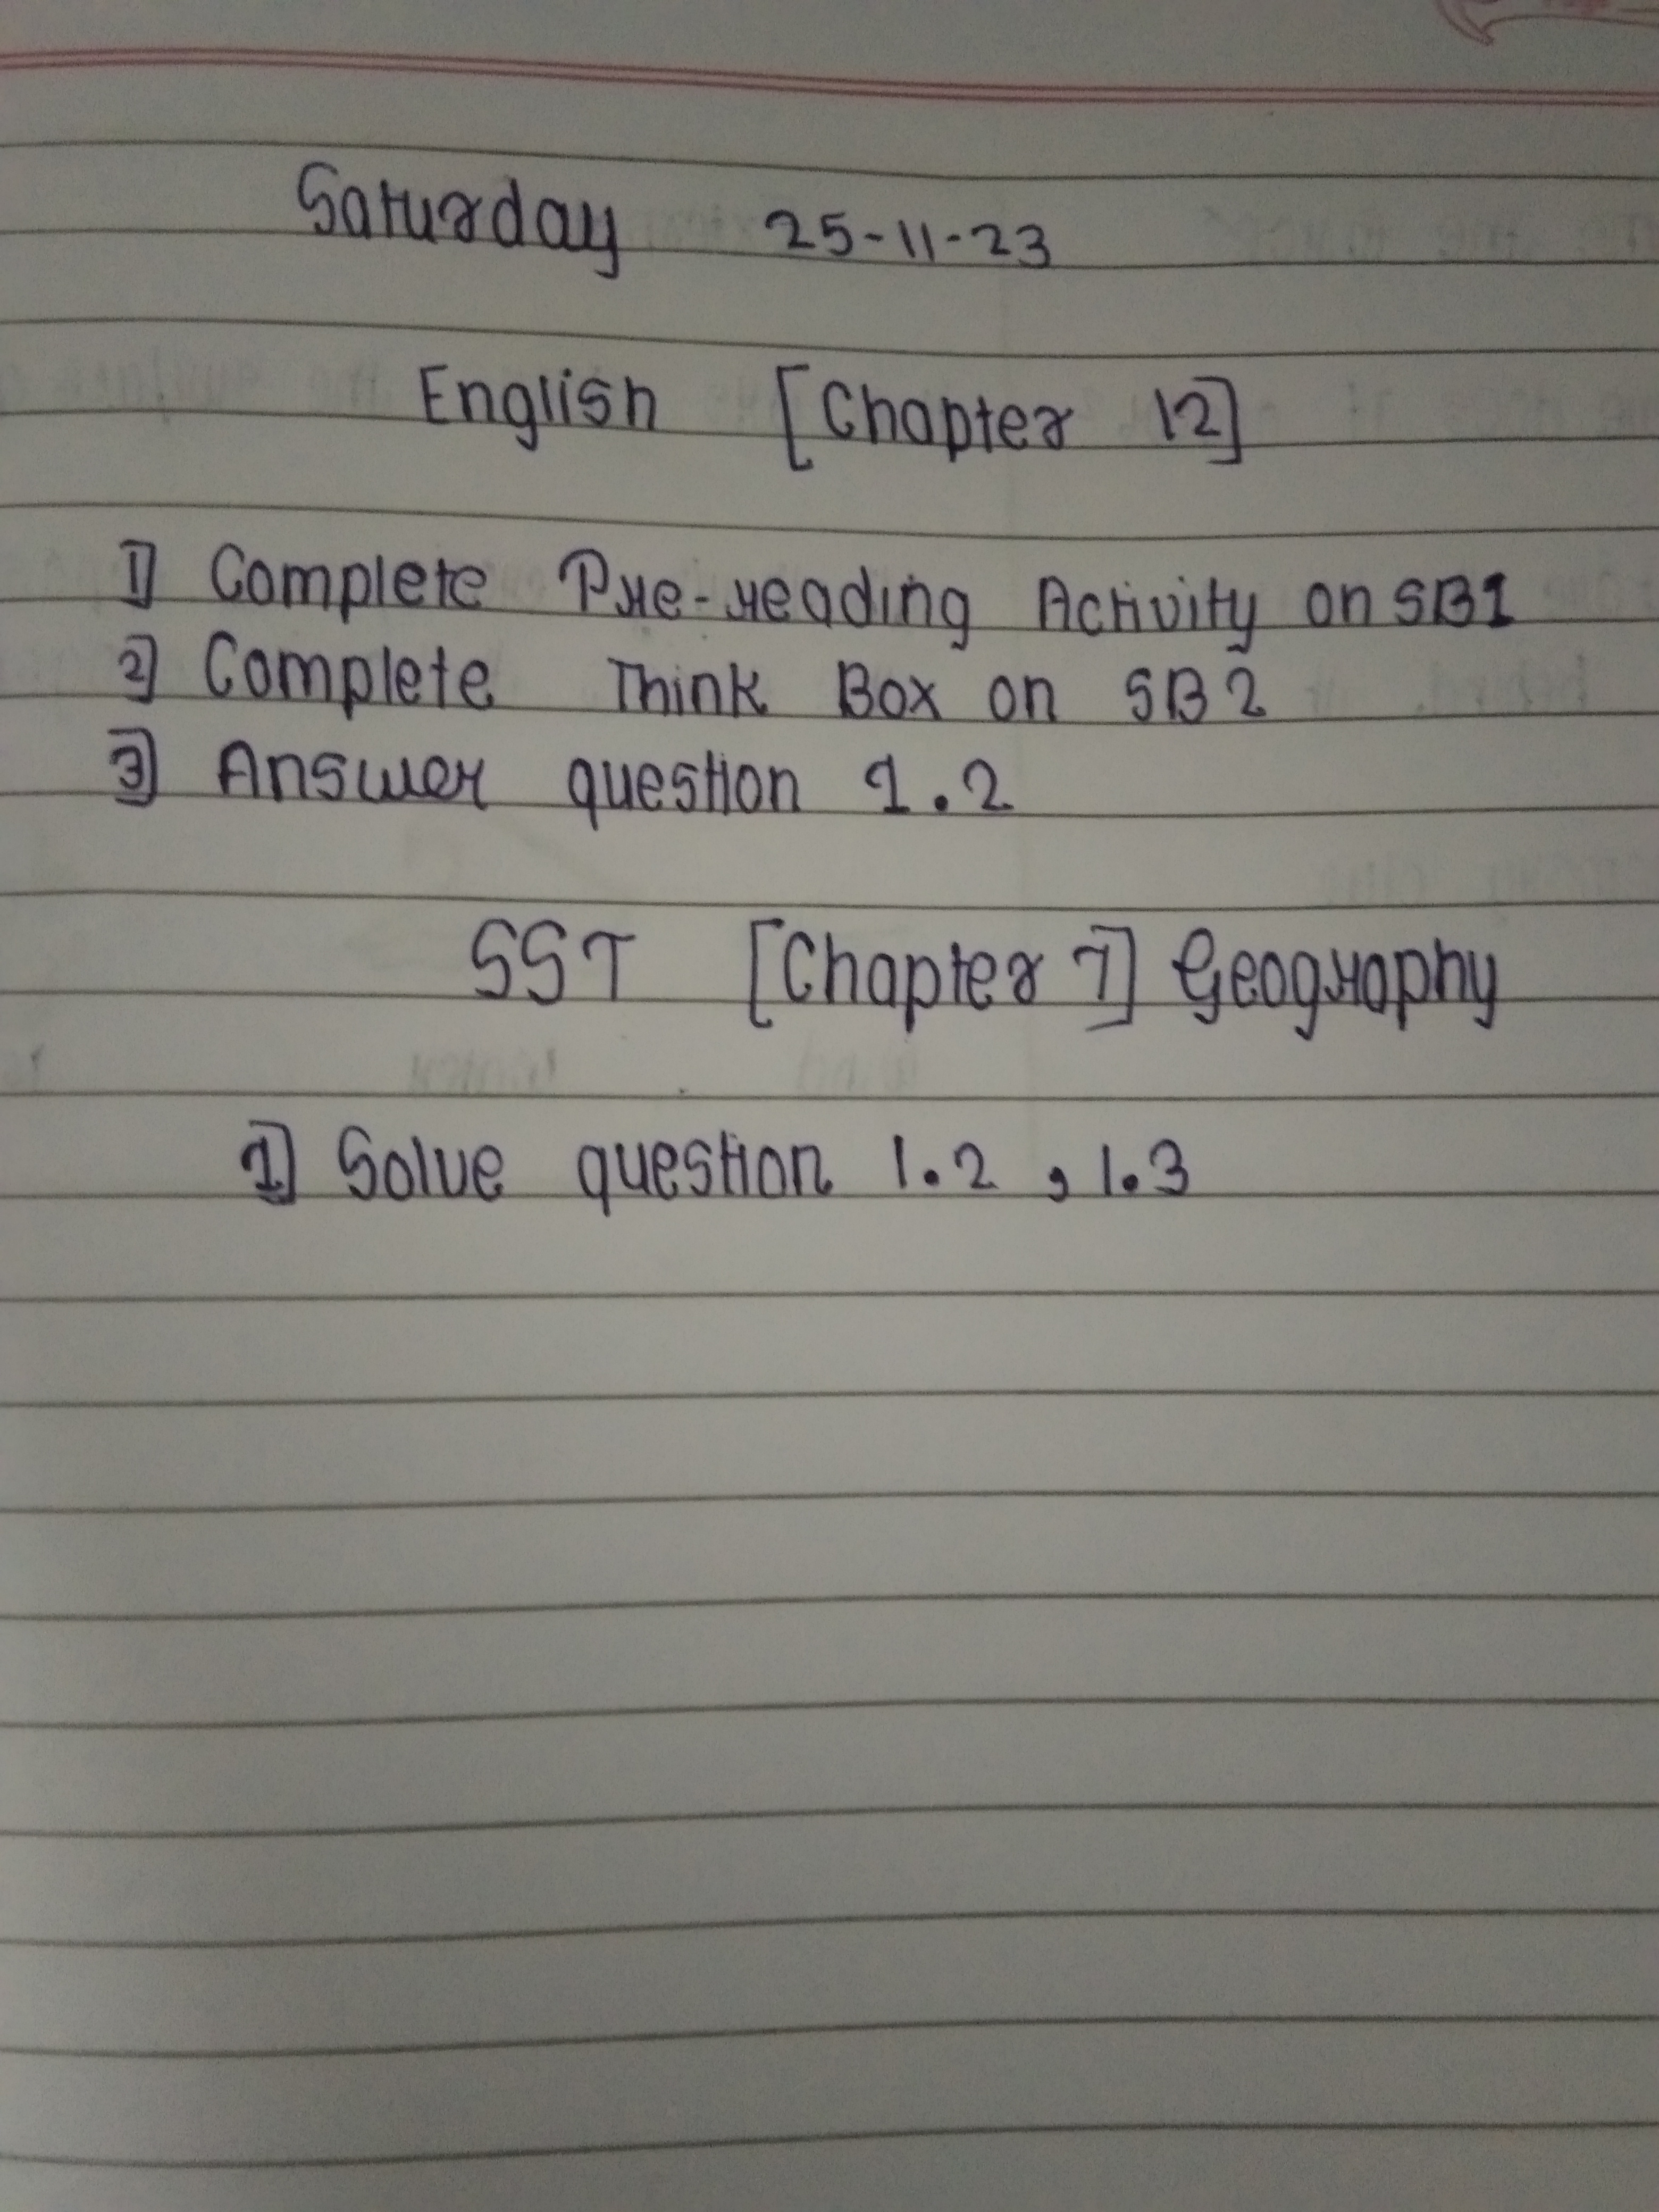 Saturday 25-11-23
English [Chapter 12]
1] Complete Pre-reading Activity on SB1
2] Complete Think Box on SB2
3] Answer question 1.2
SST [Chapter 7] Geography
1] Solve question 1.2 , 1.3